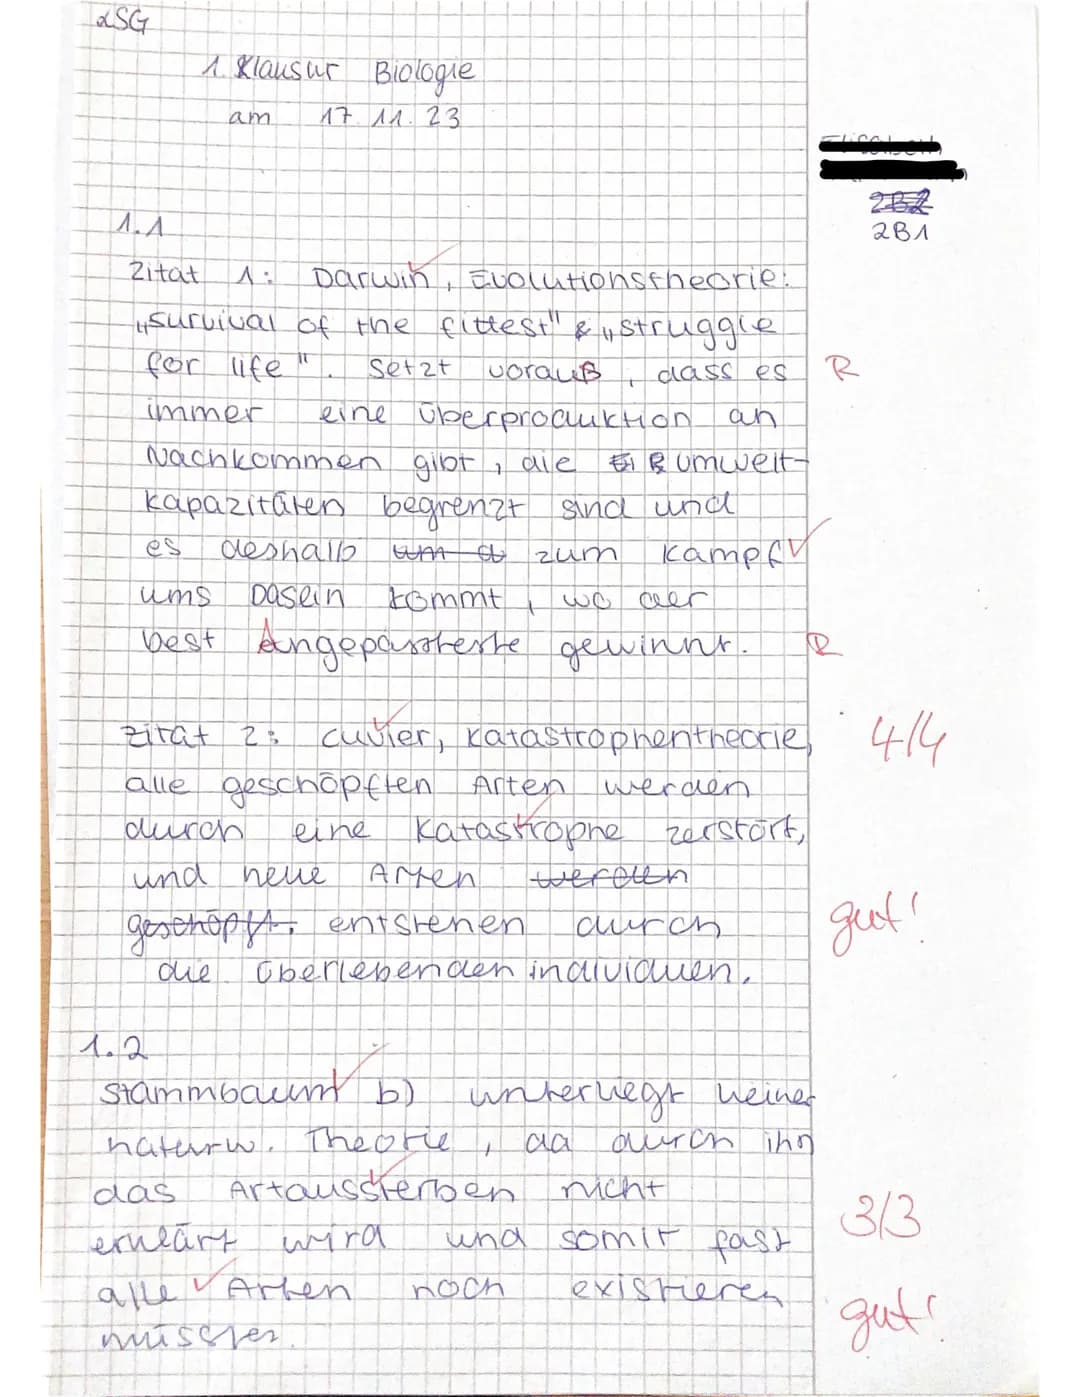 2SG
1. Klausur Biologie
am 17.11.23
2B2
2B1
1.1
Zitat 1: Darwin, Evolutionstheorie:
„survival of the fittest" & „struggle
for life". Setzt vorauß, dass es R
immer eine Überproduktion an
Nachkommen gibt, die Umwelt-
kapazitäten begrenzt sind und
es deshalb zum Kampf
ums Dasein kommt, wo der
best Angepassteste gewinnt. R
Zitat 2: Cuvier, Katastrophentheorie, 4/4
alle geschöpften Arten werden
durch eine Katastrophe zerstört,
und neue Arten werden
geschöpft. entstehen durch gut!
die überlebenden Individuen.
1.2
Stammbaum b) unterliegt keiner
naturw. Theorie, da durch ihn
das Artaussterben nicht
erklärt wird und somit fast 3/3
alle Arten noch existieren
müssten. gut!